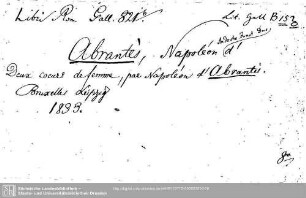 Libri Rom Gall. 821
Lit. Gall B 1530
Abrantès, Napoléon d'
Deux coeurs de femme, par Napoléon d'Abrantès.
Bruxelles Leipzig
1833.
8°